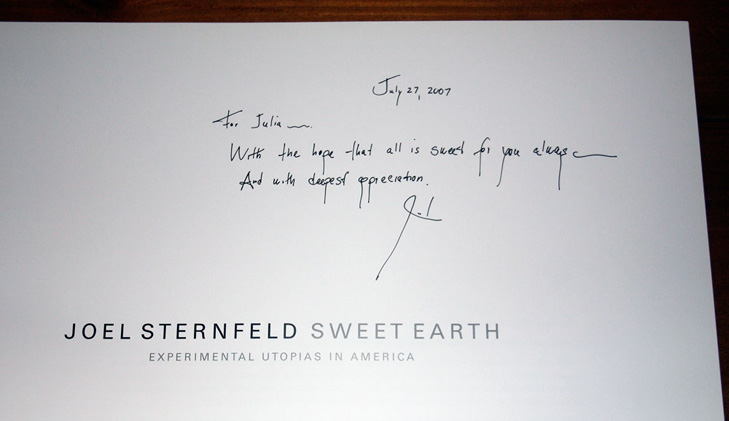 July 27, 2007
For Julia
With the hope that all is sweet for you always
And with deepest appreciation.
Joel
JOEL STERNFELD SWEET EARTH
EXPERIMENTAL UTOPIAS IN AMERICA